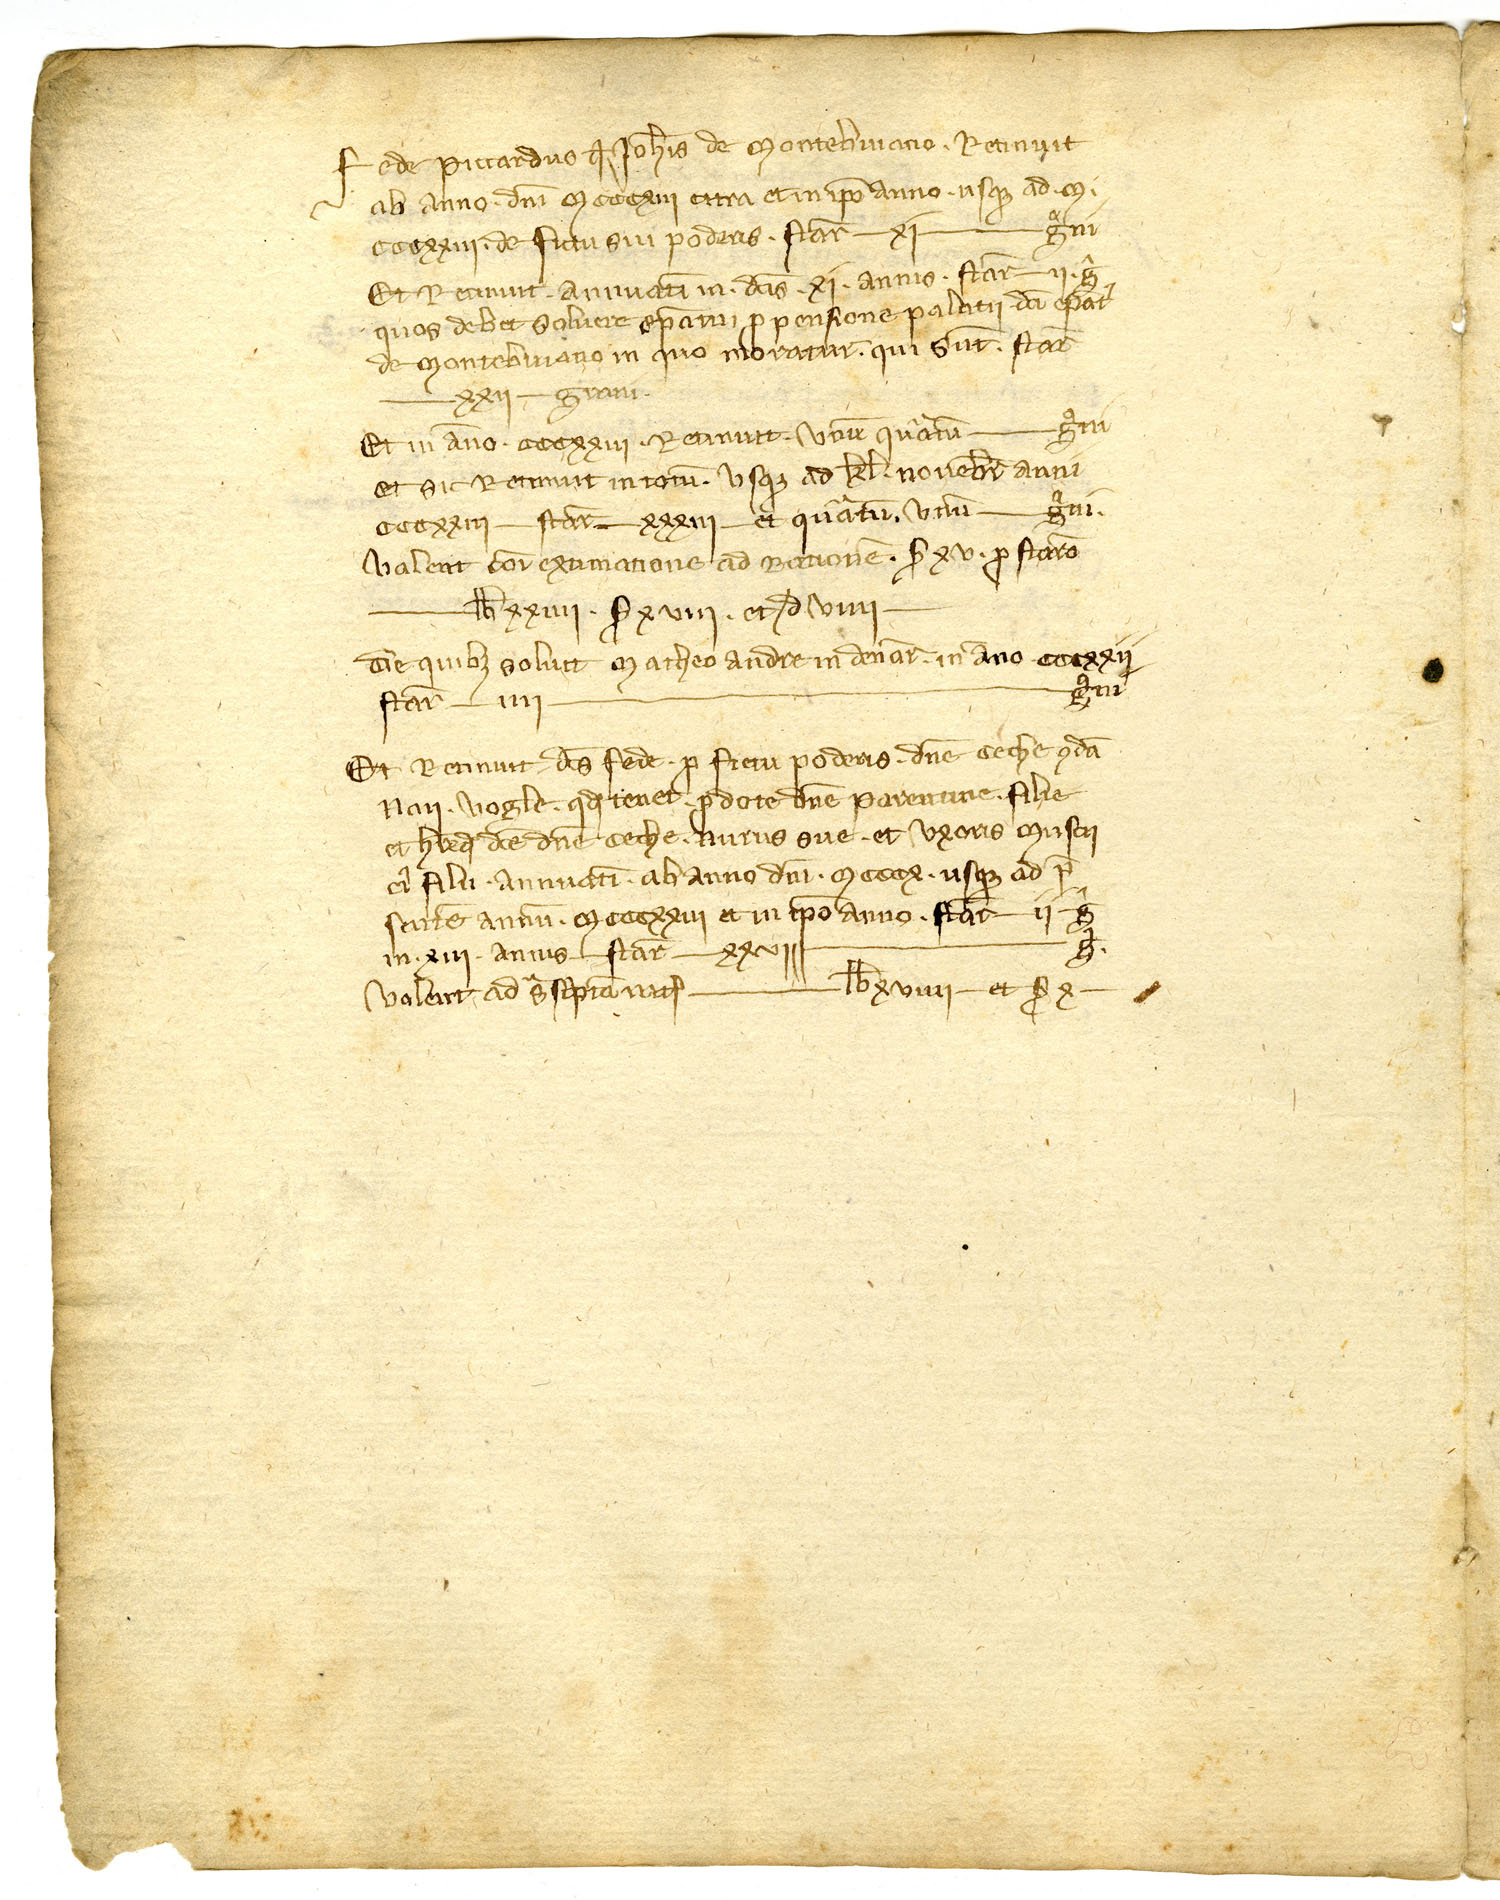 Fede piccardus qͣ Joh̄is de Montebluiano. Retinuit
ab anno. dn̄i MCCCXIII citra et in ip̄o anno. usqꝫ ad. M.
CCCXXIII. de fictu sui poderis. star̄ — XI — gͣni
Et Retinuit. Annuatī in. dc̄is. XI. annis. star̄ — II. gͣ
quos debet soluere ep̄atui ꝓ pensione palatii dc̄i ep̄at
de Montebluiano in quo moratur. qui sūt. star̄
— XXII — grani.
Et in āno. CCCXXIII. Retinuit. Vnū quͣrtū — gͣni
et sic Retinuit in totū. Vsqꝫ ad kl̄. nouebr̄ anni
CCCXXIII — star̄ — XXXIII — et quͣrtū. Vnū — gͣni.
Valent cōi extimatione ad Rationē. s̄ XV. ꝓ staro
— lb̄ XXIIII. s̄ XVIII. et d̄ VIIII —
De quibꝫ soluit Matheo andre in denar̄. in āno CCCXXII
star̄ — IIII — gͣni
Et Retinuit dc̄s fede. ꝓ fictu poderis. dn̄e Ceche qͦdā
Naii. Vogle. qd̄ tenet. ꝓ dote dn̄e parentine. filie
et hēd dc̄e dn̄e Ceche. nurus sue. et Vxoris Muscii
ei filii. Annuatī. ab anno dn̄i. MCCCX. usqꝫ ad p̄
sentē annū. MCCCXXIII et in ip̄o anno. star̄ — II gͣ
in. XIII. annis — star̄ — XXVI — g.
Valent ad sͣsc̄ptā rat̄ — lb̄ XVIIII — et s̄ X —